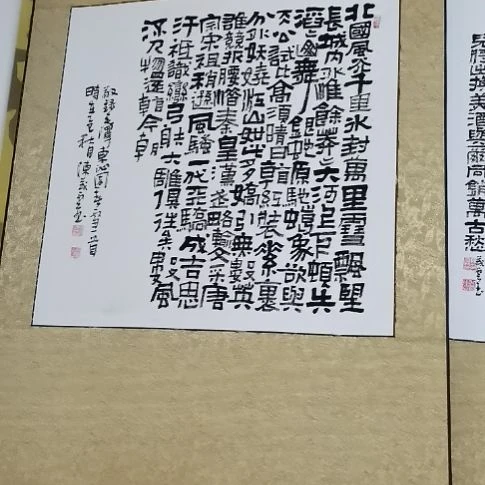 兒將出換美酒與爾同銷萬古愁
北國風光千里冰封萬里雪飄望
長城内外惟餘莽莽大河上下頓失
滔滔山舞銀蛇原馳蠟象欲與
天公試比高須晴日看紅裝素裹
分外妖嬈江山如此多嬌引無數英
雄競折腰惜秦皇漢武略輸文采唐
宗宋祖稍遜風騷一代天驕成吉思
汗祗識彎弓射大雕俱往矣數風
流人物還看今朝
敬錄毛澤東沁園春雪一首